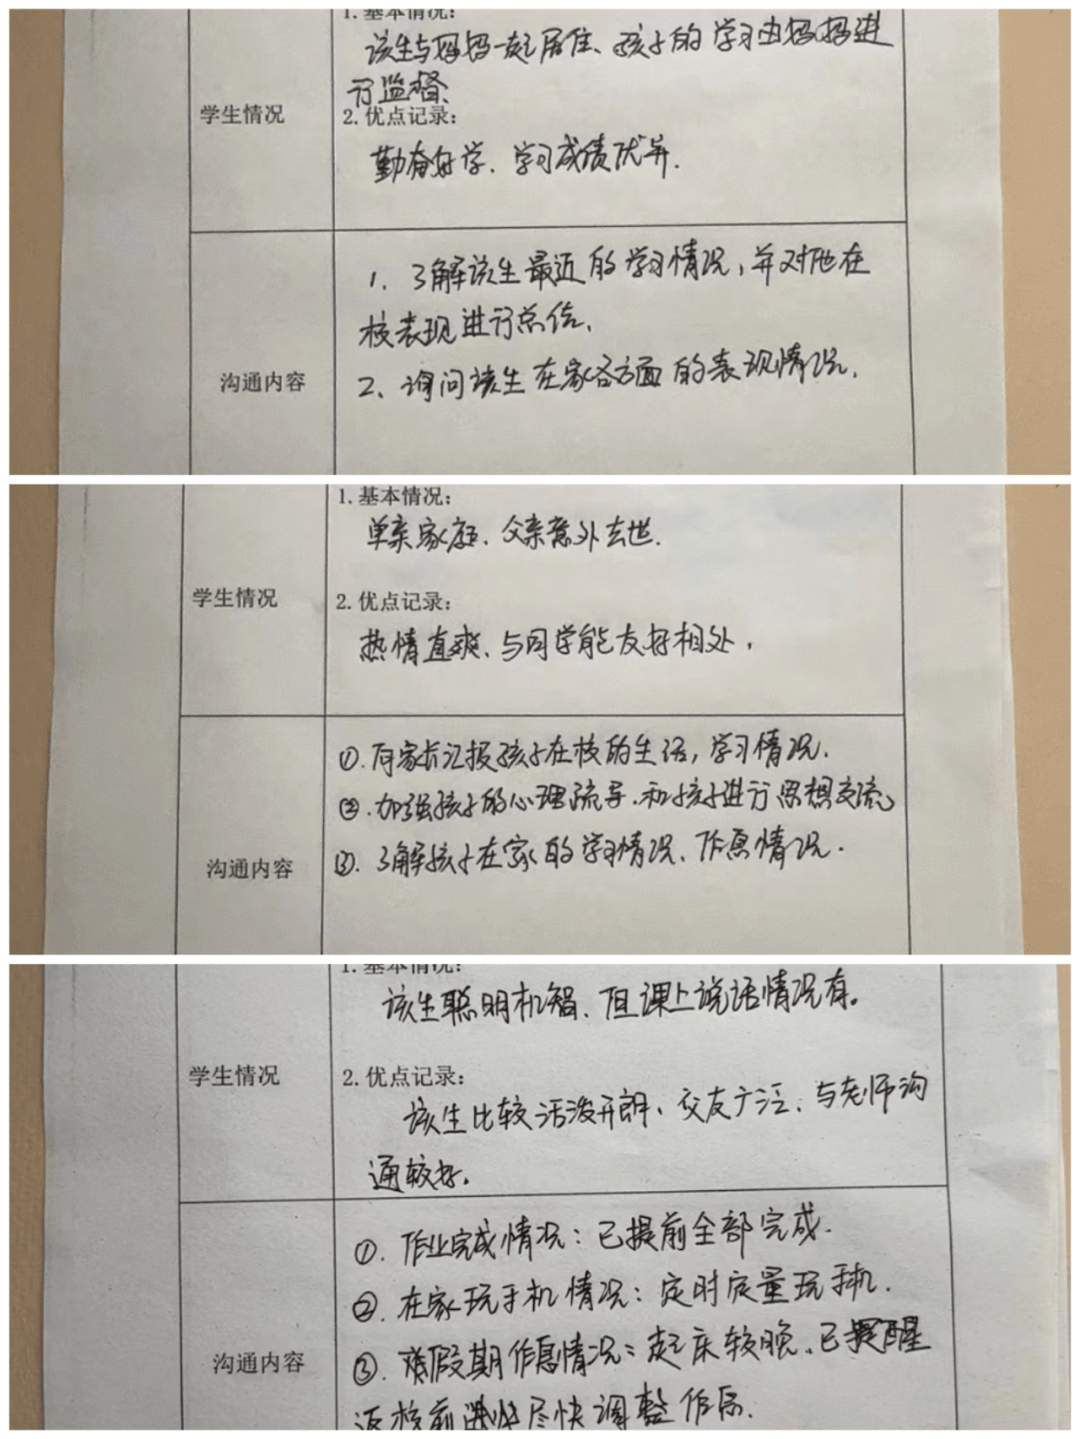 1. 基本情况：
该生与妈妈一起居住、孩子的学习由妈妈进
行监督、
学生情况
2. 优点记录：
勤奋好学、学习成绩优异.
1. 了解该生最近的学习情况，并对他在
校表现进行总结、
沟通内容
2、询问该生在家各方面的表现情况.
1. 基本情况：
单亲家庭、父亲意外去世.
学生情况
2. 优点记录：
热情直爽、与同学能友好相处，
①.向家长汇报孩子在校的生活，学习情况.
②.加强孩子的心理疏导.和孩子进行思想交流
沟通内容
③.了解孩子在家的学习情况、作息情况.
1. 基本情况：
该生聪明机智、但课上说话情况有。
学生情况
2. 优点记录：
该生比较活泼开朗、交友广泛、与老师沟
通较好.
①. 作业完成情况：已提前全部完成.
②. 在家玩手机情况：定时定量玩手机.
沟通内容
③. 假期作息情况：起床较晚、已提醒
返校前 尽快调整作息.